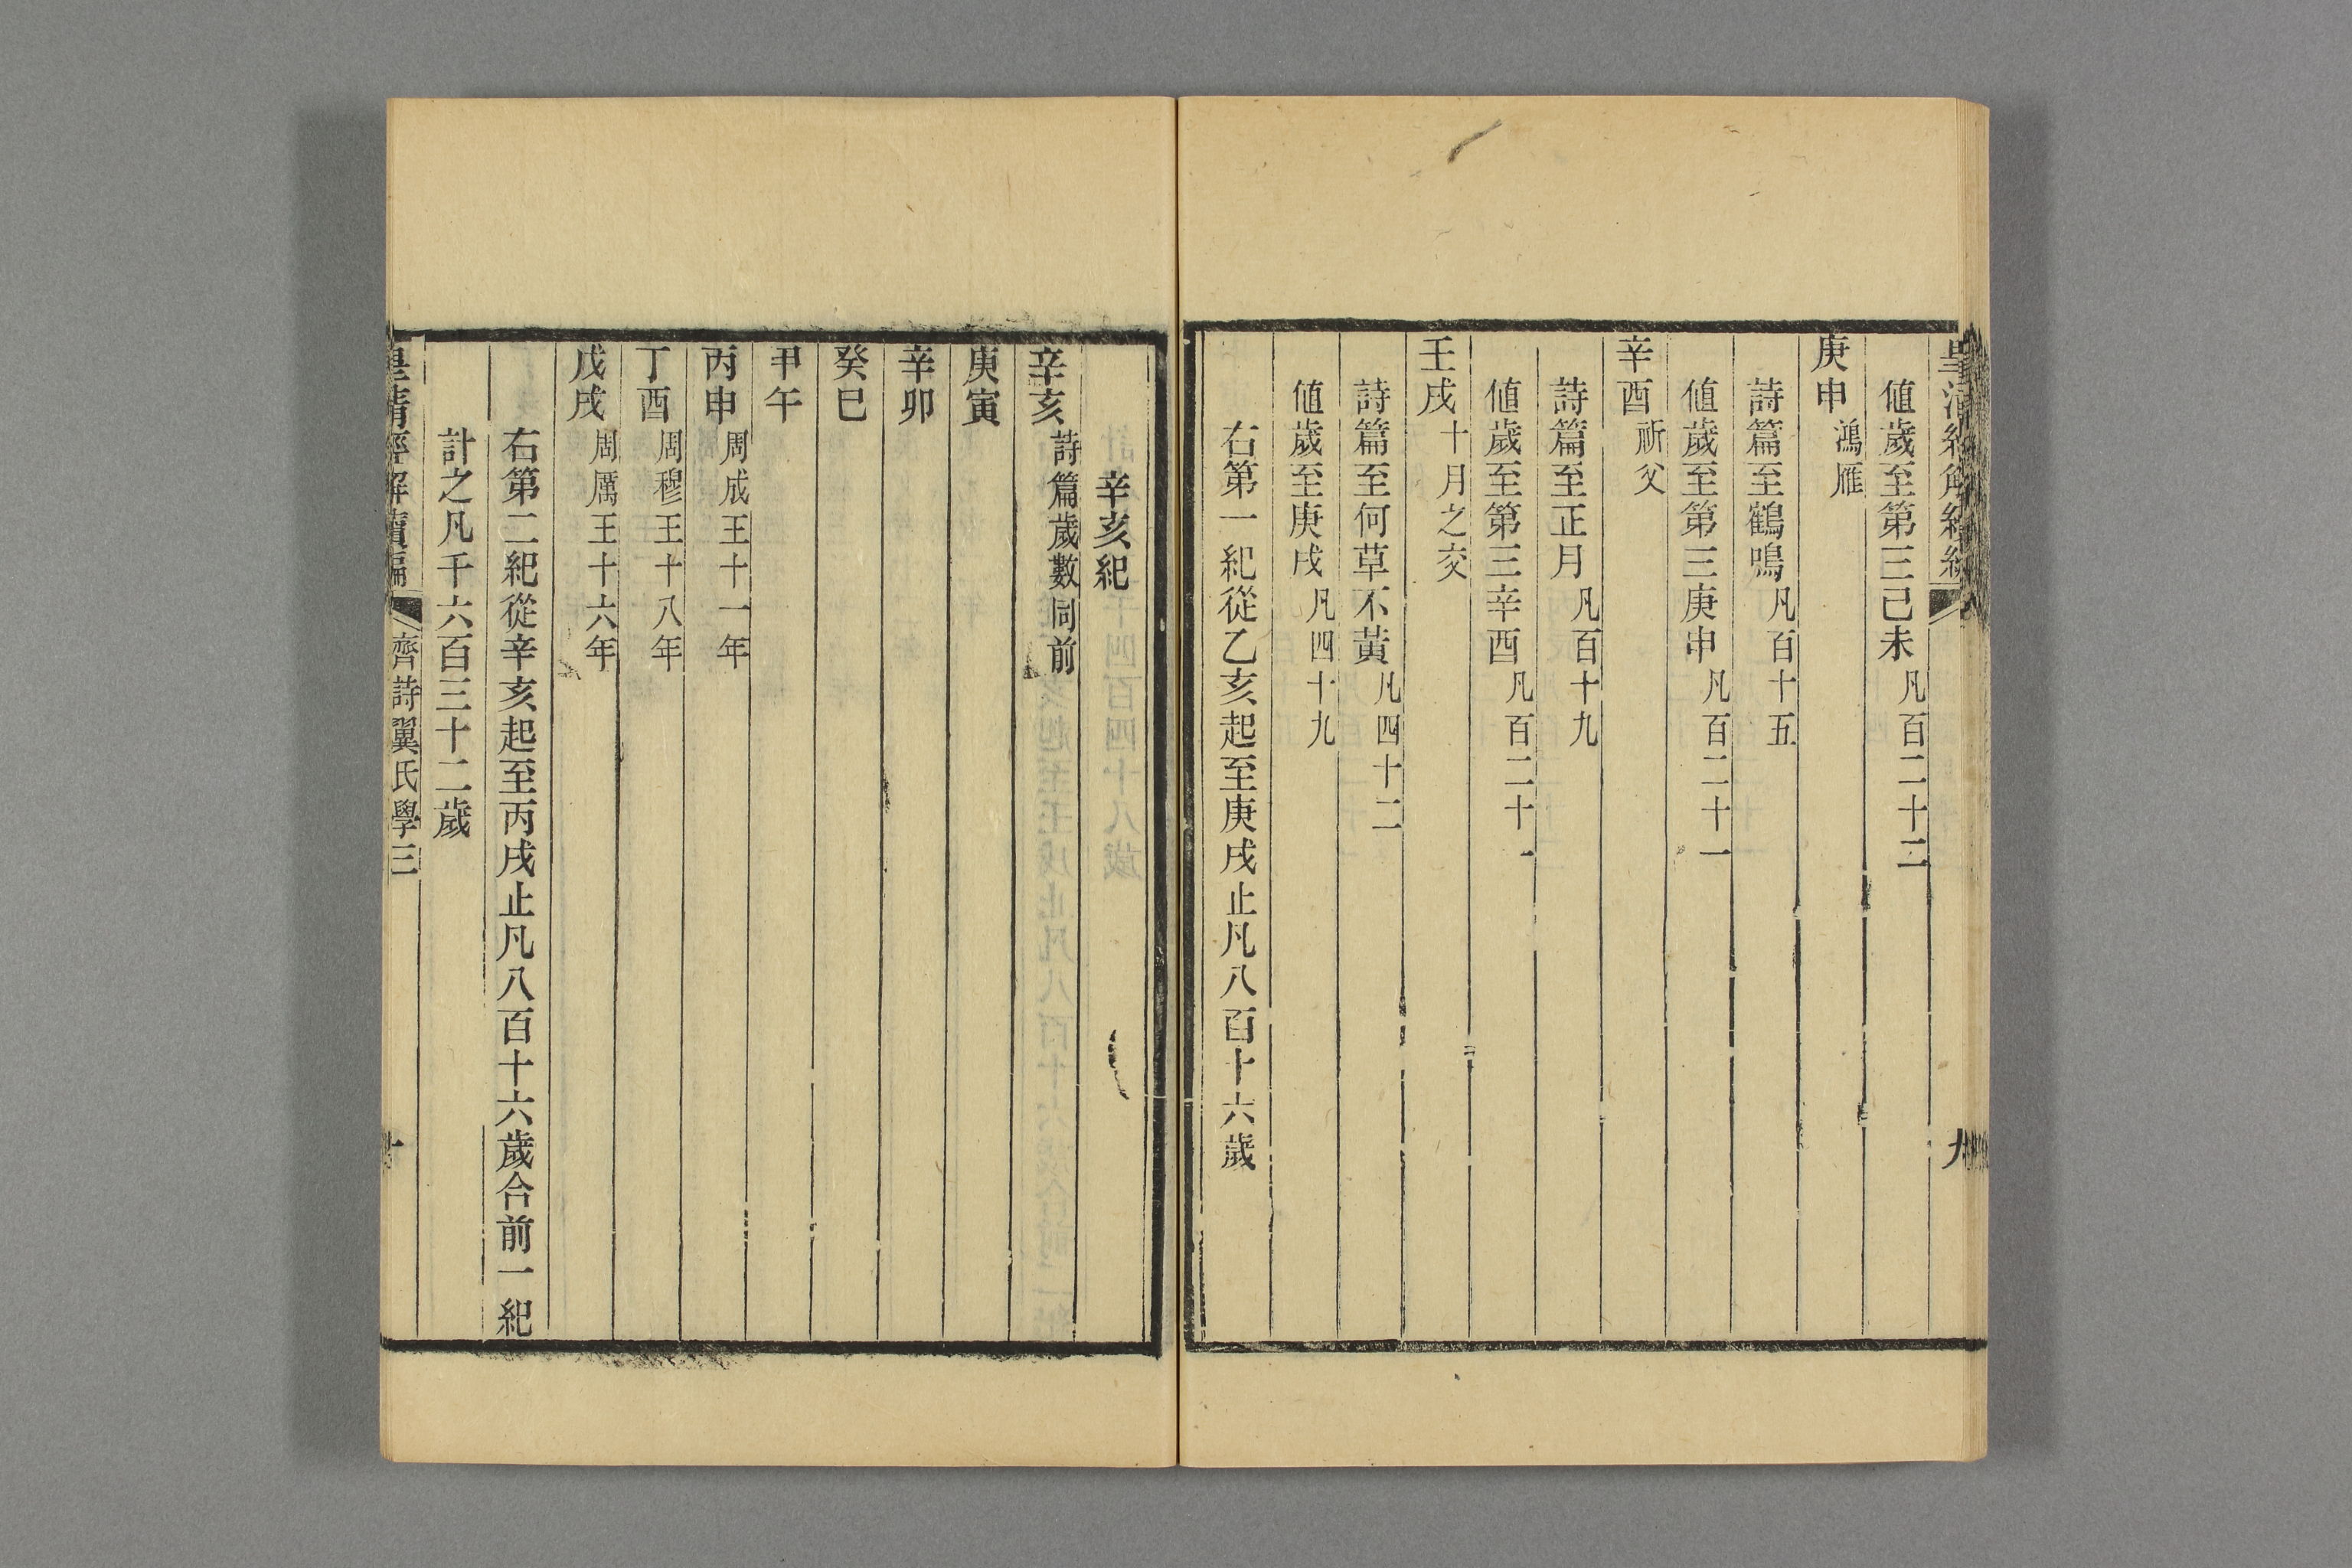 値歲至第三己未凡百二十二
庚申鴻雁
詩篇至鶴鳴凡百十五
値歲至第三庚申凡百二十一
辛酉祈父
詩篇至正月凡百十九
値歲至第三辛酉凡百二十一
壬戌十月之交
詩篇至何草不黃凡四十二
値歲至庚戌凡四十九
右第一紀從乙亥起至庚戌止凡八百十六歲
辛亥紀
辛亥詩篇歲數同前
庚寅
辛卯
癸巳
甲午
丙申周成王十一年
丁酉周穆王十八年
戊戌周厲王十六年
右第二紀從辛亥起至丙戌止凡八百十六歲合前一紀
計之凡千六百三十二歲
皇清經解續編 齊詩翼氏學三 十